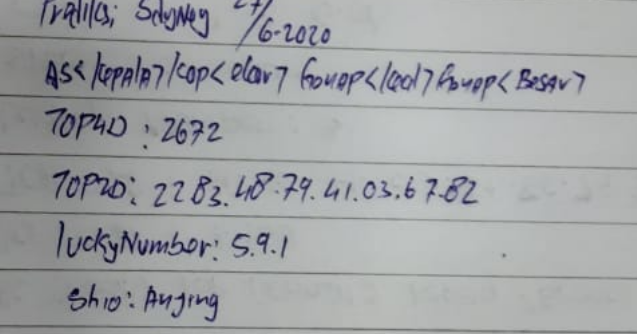 Prediksi Sdyney 27/6-2020
AS<KepAlA>KOP<ekor> GENAP<Kecil> GENAP<BESAr>
TOP4D : 2672
TOP2D: 2283.48.79.41.03.67.82
luckyNumber: 5.9.1
Shio: Anjing